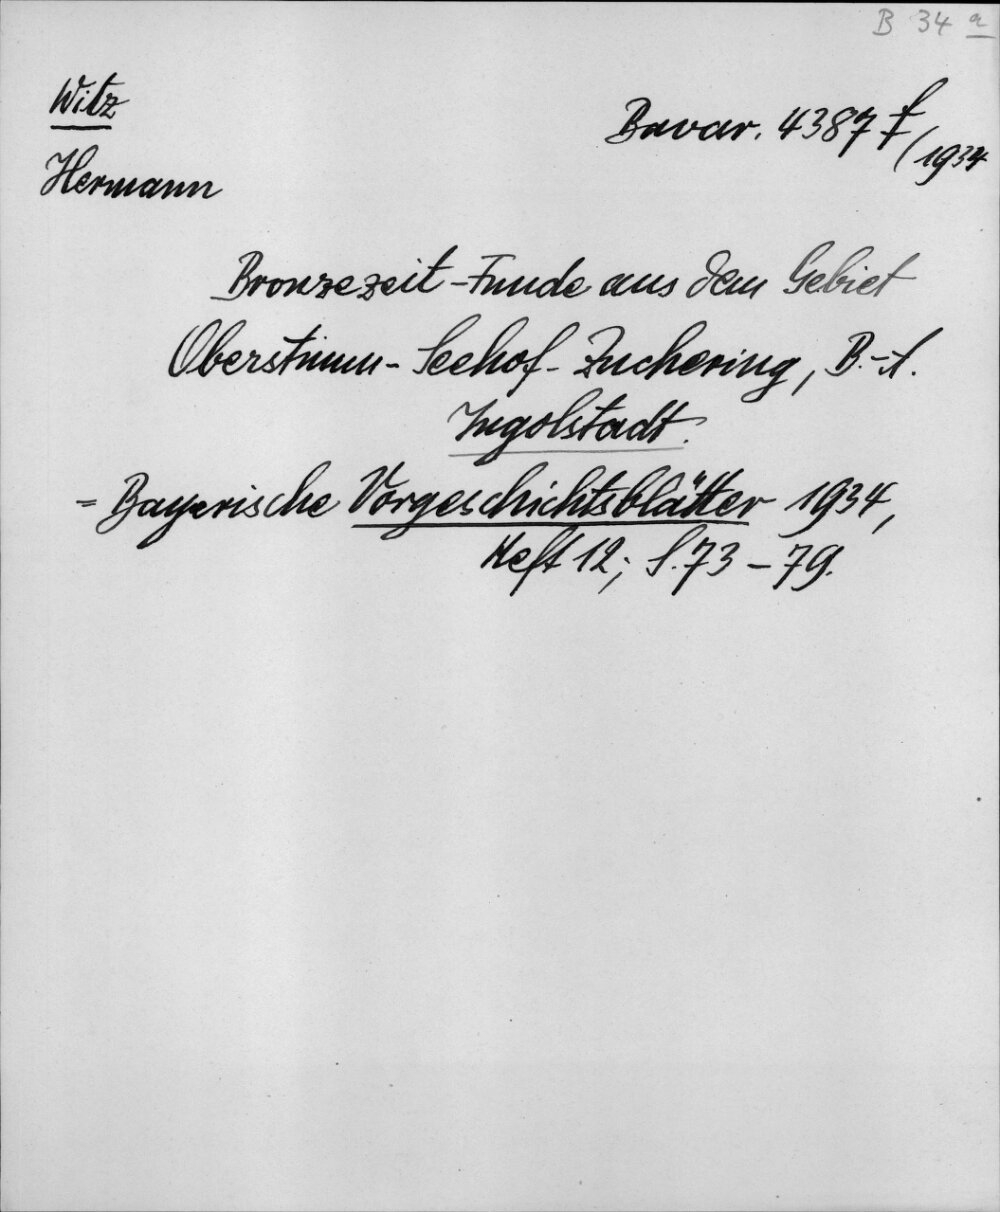 B 34 a
Witz
Bavar. 4387 f/1934
Hermann
Bronzezeit-Funde aus dem Gebiet
Oberstimm-Seehof-Zuchering, B.-A.
Ingolstadt.
= Bayerische Vorgeschichtsblätter 1934,
Heft 12; S. 73 – 79.